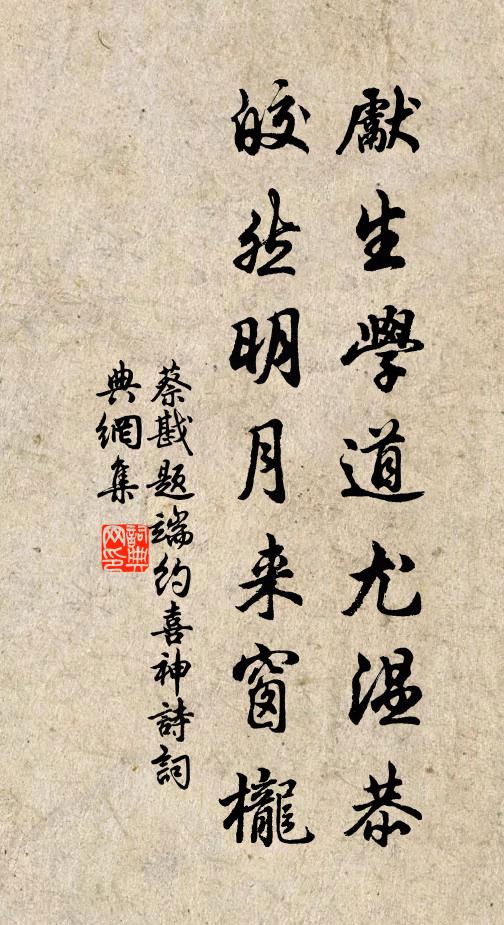 獻生學道尤温恭
皎然明月来窗櫳
蔡戡題端約喜神詩詞
典網集
詞典
网印